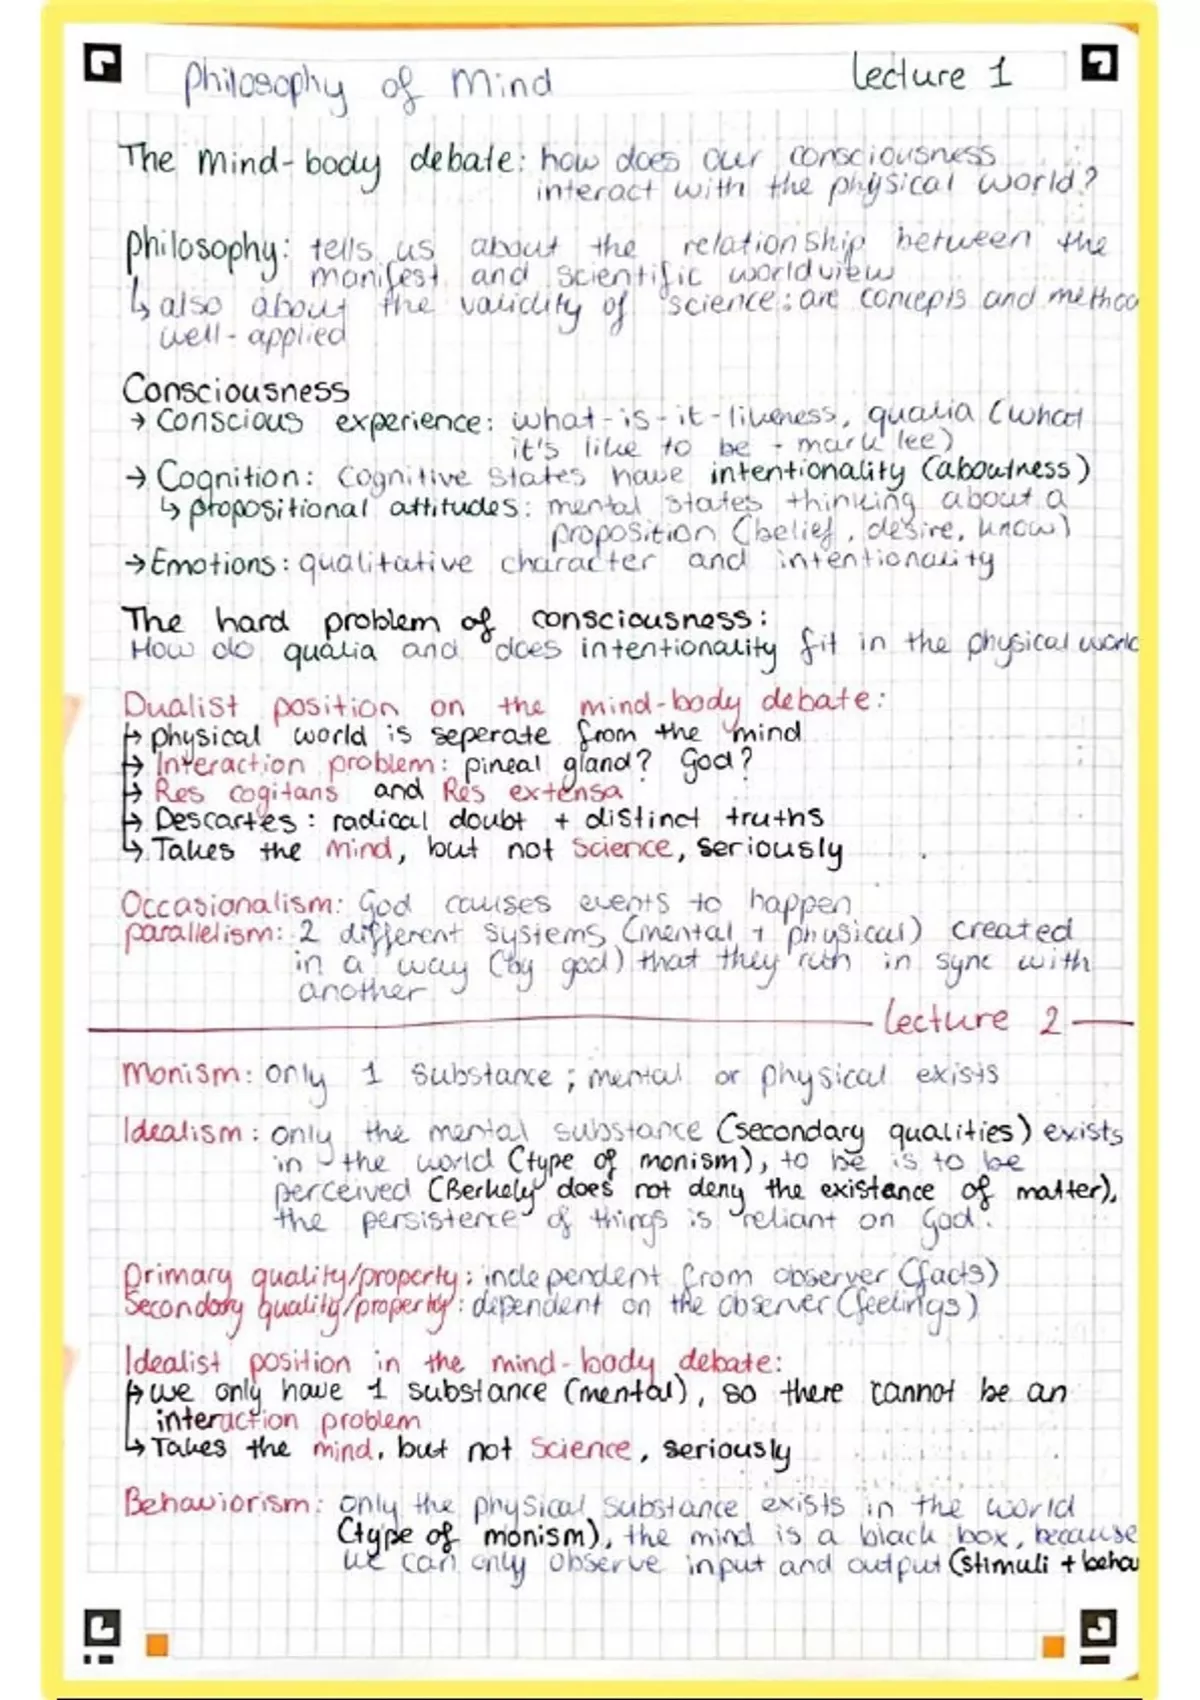 Philosophy of Mind
Lecture 1
The Mind-body debate: how does our consciousness
interact with the physical world?
Philosophy: tells us about the relationship between the
manifest and scientific worldview
↳ also about the validity of science: are concepts and metho
well-applied
Consciousness
→ Conscious experience: what-is-it-likeness, qualia (what
it's like to be - mark lee)
→ Cognition: Cognitive states have intentionality (aboutness)
↳ propositional attitudes: mental states thinking about a
proposition (belief, desire, know)
→ Emotions: qualitative character and intentionality
The hard problem of consciousness:
How do qualia and does intentionality fit in the physical world
Dualist position on the mind-body debate:
↳ physical world is seperate from the mind
↳ Interaction problem: pineal gland? God?
↳ Res cogitans and Res extensa
↳ Descartes: radical doubt + distinct truths
↳ Takes the mind, but not science, seriously
Occasionalism: God causes events to happen
parallelism: 2 different systems (mental + physical) created
in a way (by god) that they run in sync with
another
Lecture 2
Monism: only 1 substance; mental or physical exists
Idealism: only the mental substance (secondary qualities) exists
in the world (type of monism), to be is to be
perceived (Berkely does not deny the existence of matter),
the persistence of things is reliant on God.
Primary quality/property: independent from observer (facts)
Secondary quality/property: dependent on the observer (feelings)
Idealist position in the mind-body debate:
↳ we only have 1 substance (mental), so there cannot be an
interaction problem
↳ Takes the mind, but not science, seriously
Behaviorism: only the physical substance exists in the world
(type of monism), the mind is a black box, because
we can only observe input and output (stimuli + behav